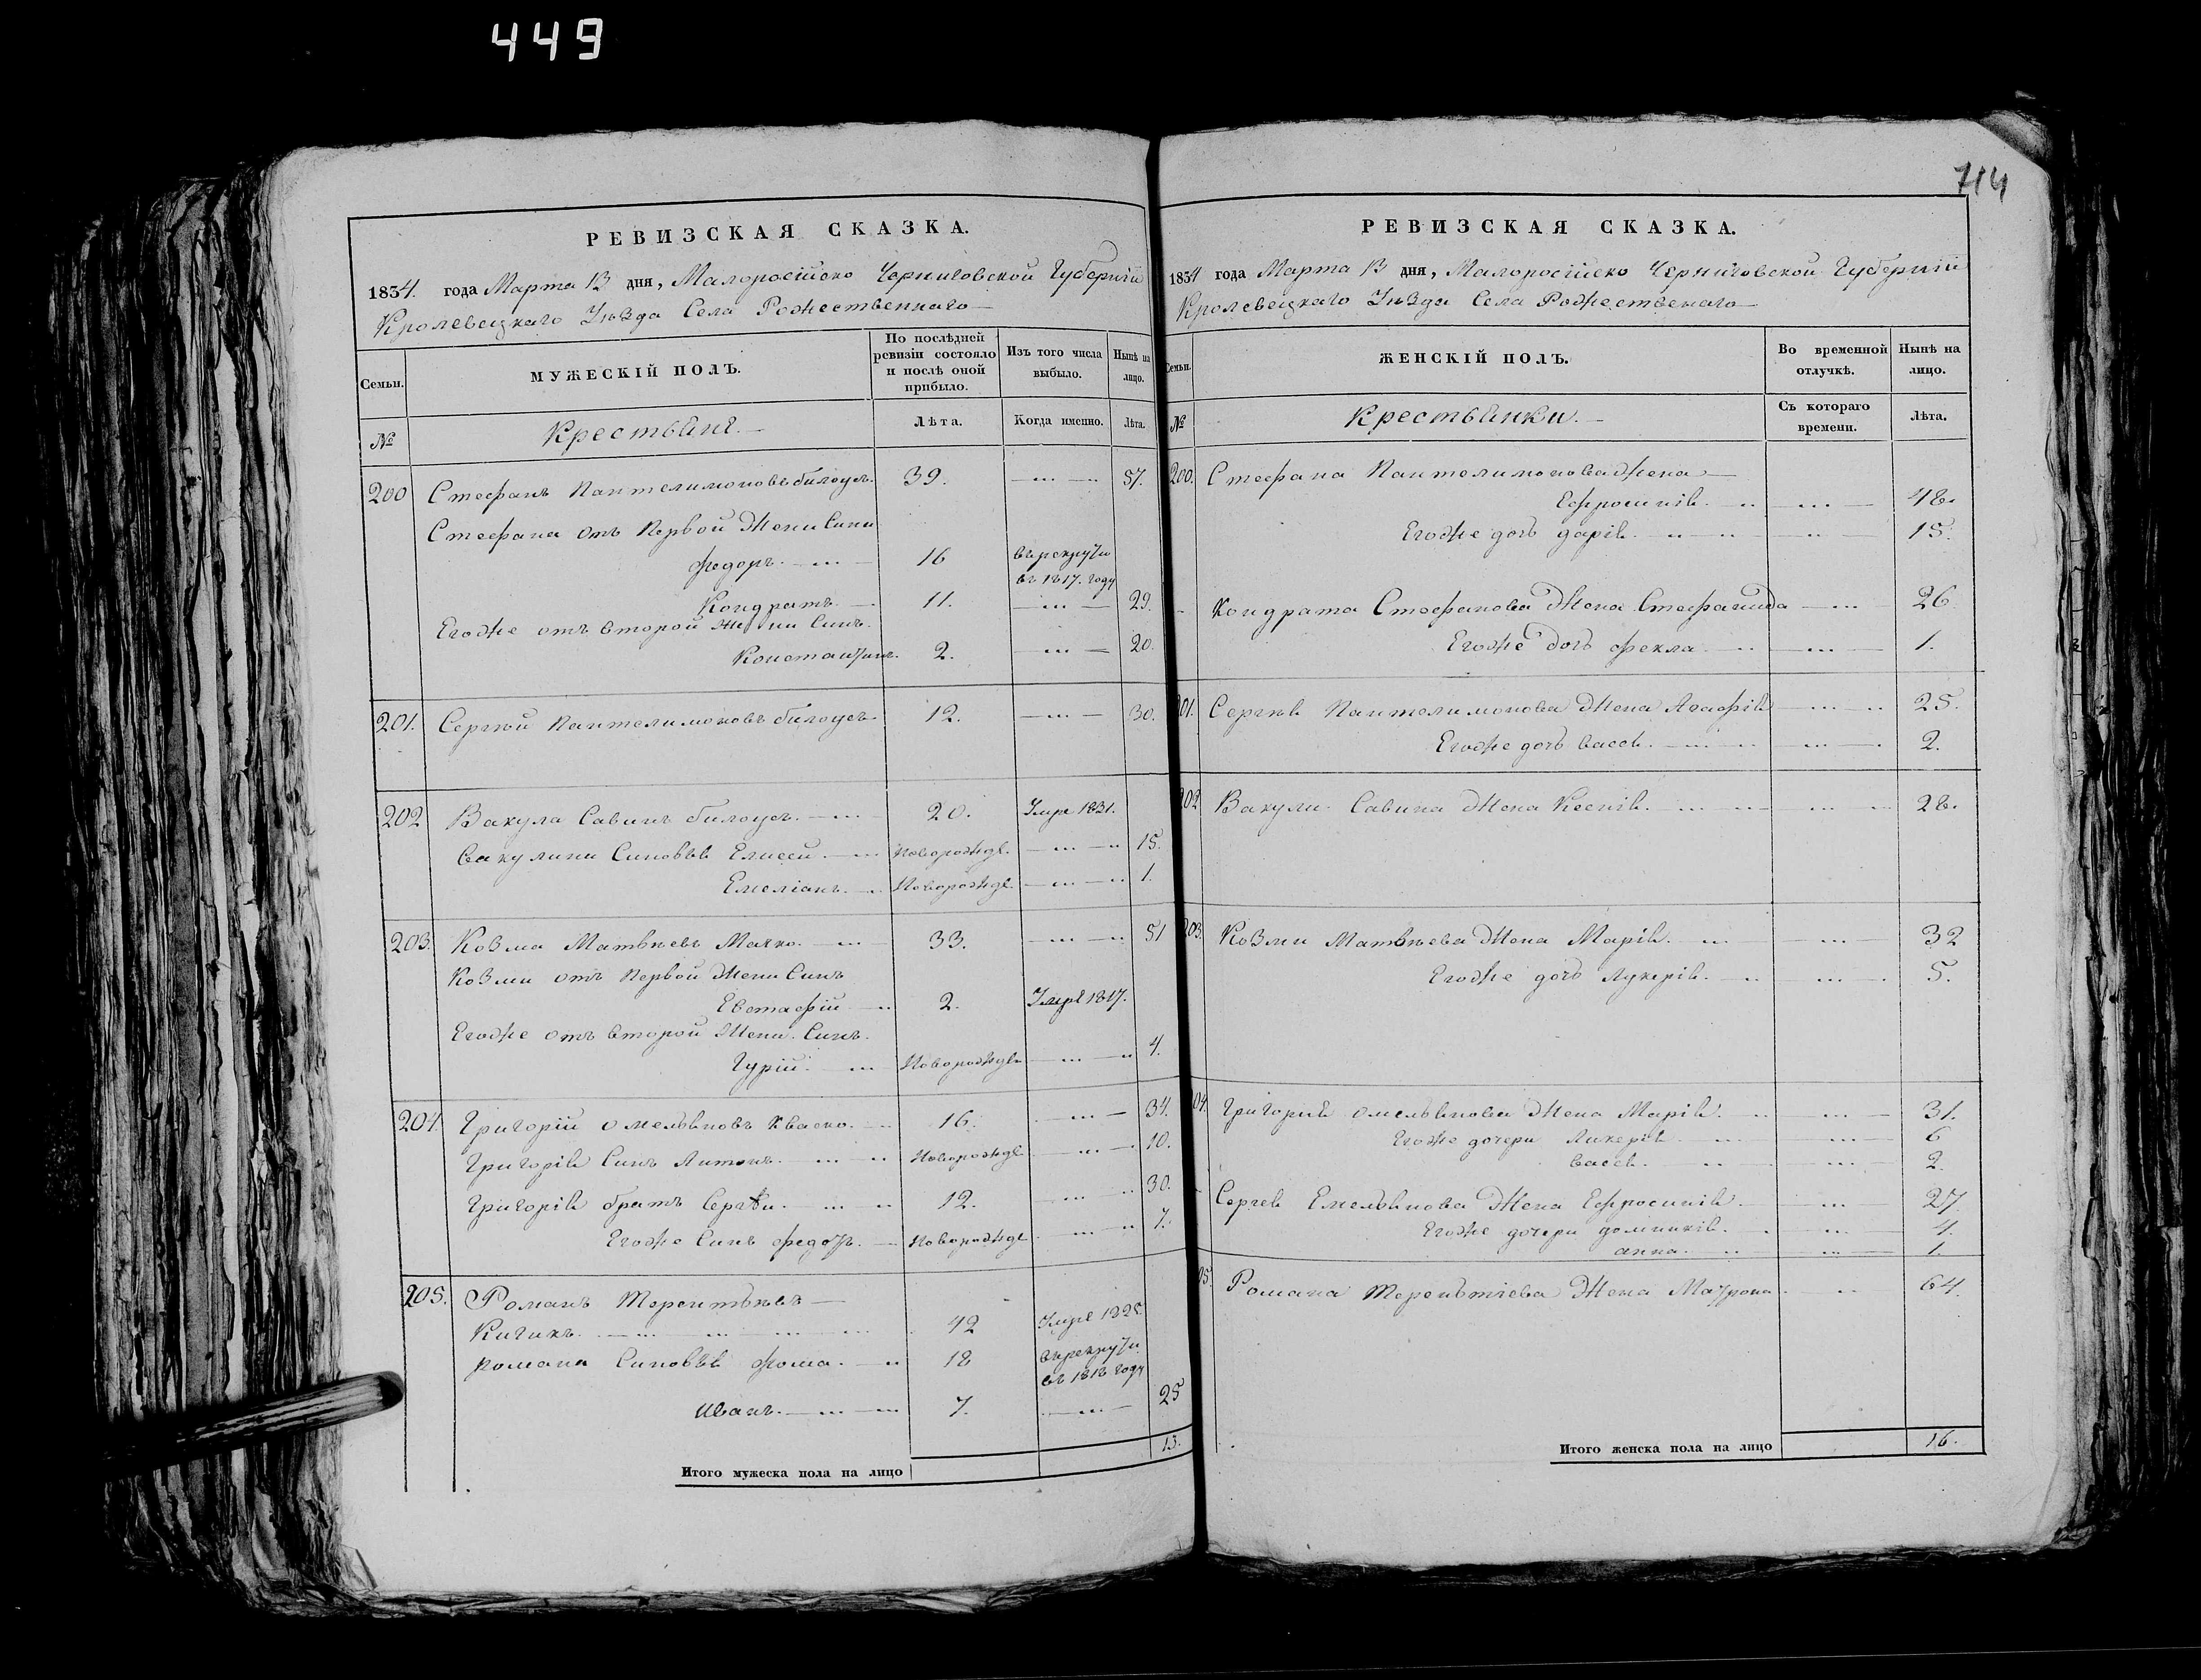 449
714
РЕВИЗСКАЯ СКАЗКА.
1834. года Марта 13 дня, Малоросійско Черниговской Губерніи
Кролевецкаго Уѣзда Села Рожественнаго
Семьи. МУЖЕСКІЙ ПОЛЪ. По послѣдней ревизіи состояло и послѣ оной прибыло. Изъ того числа выбыло. Нынѣ на лицо.
№ Крестьяне. Лѣта. Когда именно. Лѣта.
200 Стефанъ Пантелимоновъ билоусъ. 39. 57.
Стефана отъ Первой Жени Сини
Федоръ. 16 въ рекрути въ 1817. году
Кондратъ 11. 29.
Егоже отъ второй Жени Синъ.
Константинъ. 2. 20.
201. Сергѣй Пантелимоновъ билоусъ 12. 30.
202 Вакула Савинъ билоусъ. 20. Умре 1831.
Вакулини Синовья Елисей. Новорожде. 15.
Емеліанъ. Новорожде. 1.
203. Козма Матвѣевъ Мачко. 33. 51
Козми отъ Первой Жени Синъ
Евстафій 2. Умре 1817.
Егоже отъ второй Жени. Синъ.
Гурій. Новорожде 4.
204. Григорій Омельяновъ Кваско. 16. 34.
Григорія Синъ Антонъ. Новорожде 10.
Григорія братъ Сергѣй. 12. 30.
Егоже Синъ Федотъ. Новорожде 7.
205. Романъ Терентьевъ
Кигикъ. 42 Умре 1825
Романа Синовья Фома. 18 въ рекрути въ 1818 году
Иванъ. 7. 25
Итого мужеска пола на лицо 13.
РЕВИЗСКАЯ СКАЗКА.
1834 года Марта 13 дня, Малоросійско Черниговской Губерніи
Кролевецкаго Уѣзда Села Рожественаго
Семьи. ЖЕНСКІЙ ПОЛЪ. Во временной отлучкѣ. Нынѣ на лицо.
№ Крестьянки. Съ котораго времени. Лѣта.
200. Стефана Пантелимонова Жена
Ефросинія. 48.
Егоже дочь дарія. 15.
Кондрата Стефанова Жена Стефанида 26
Егоже дочь Фекла 1.
201. Сергѣя Пантелимонова Жена Агафія 25.
Егоже дочь васса. 2.
202 Вакули Савина Жена Ксенія. 28.
203. Козми Матвѣева Жена Марія. 32
Егоже дочь Лукерія. 5.
204. Григорія Омельянова Жена Марія. 31.
Егоже дочери Ликерія 6
васса. 2.
Сергея Емельянова Жена Ефросинія. 27.
Егоже дочери домникія. 4.
анна. 1
205. Романа Терентіева Жена Матрона 64.
Итого женска пола на лицо 16.